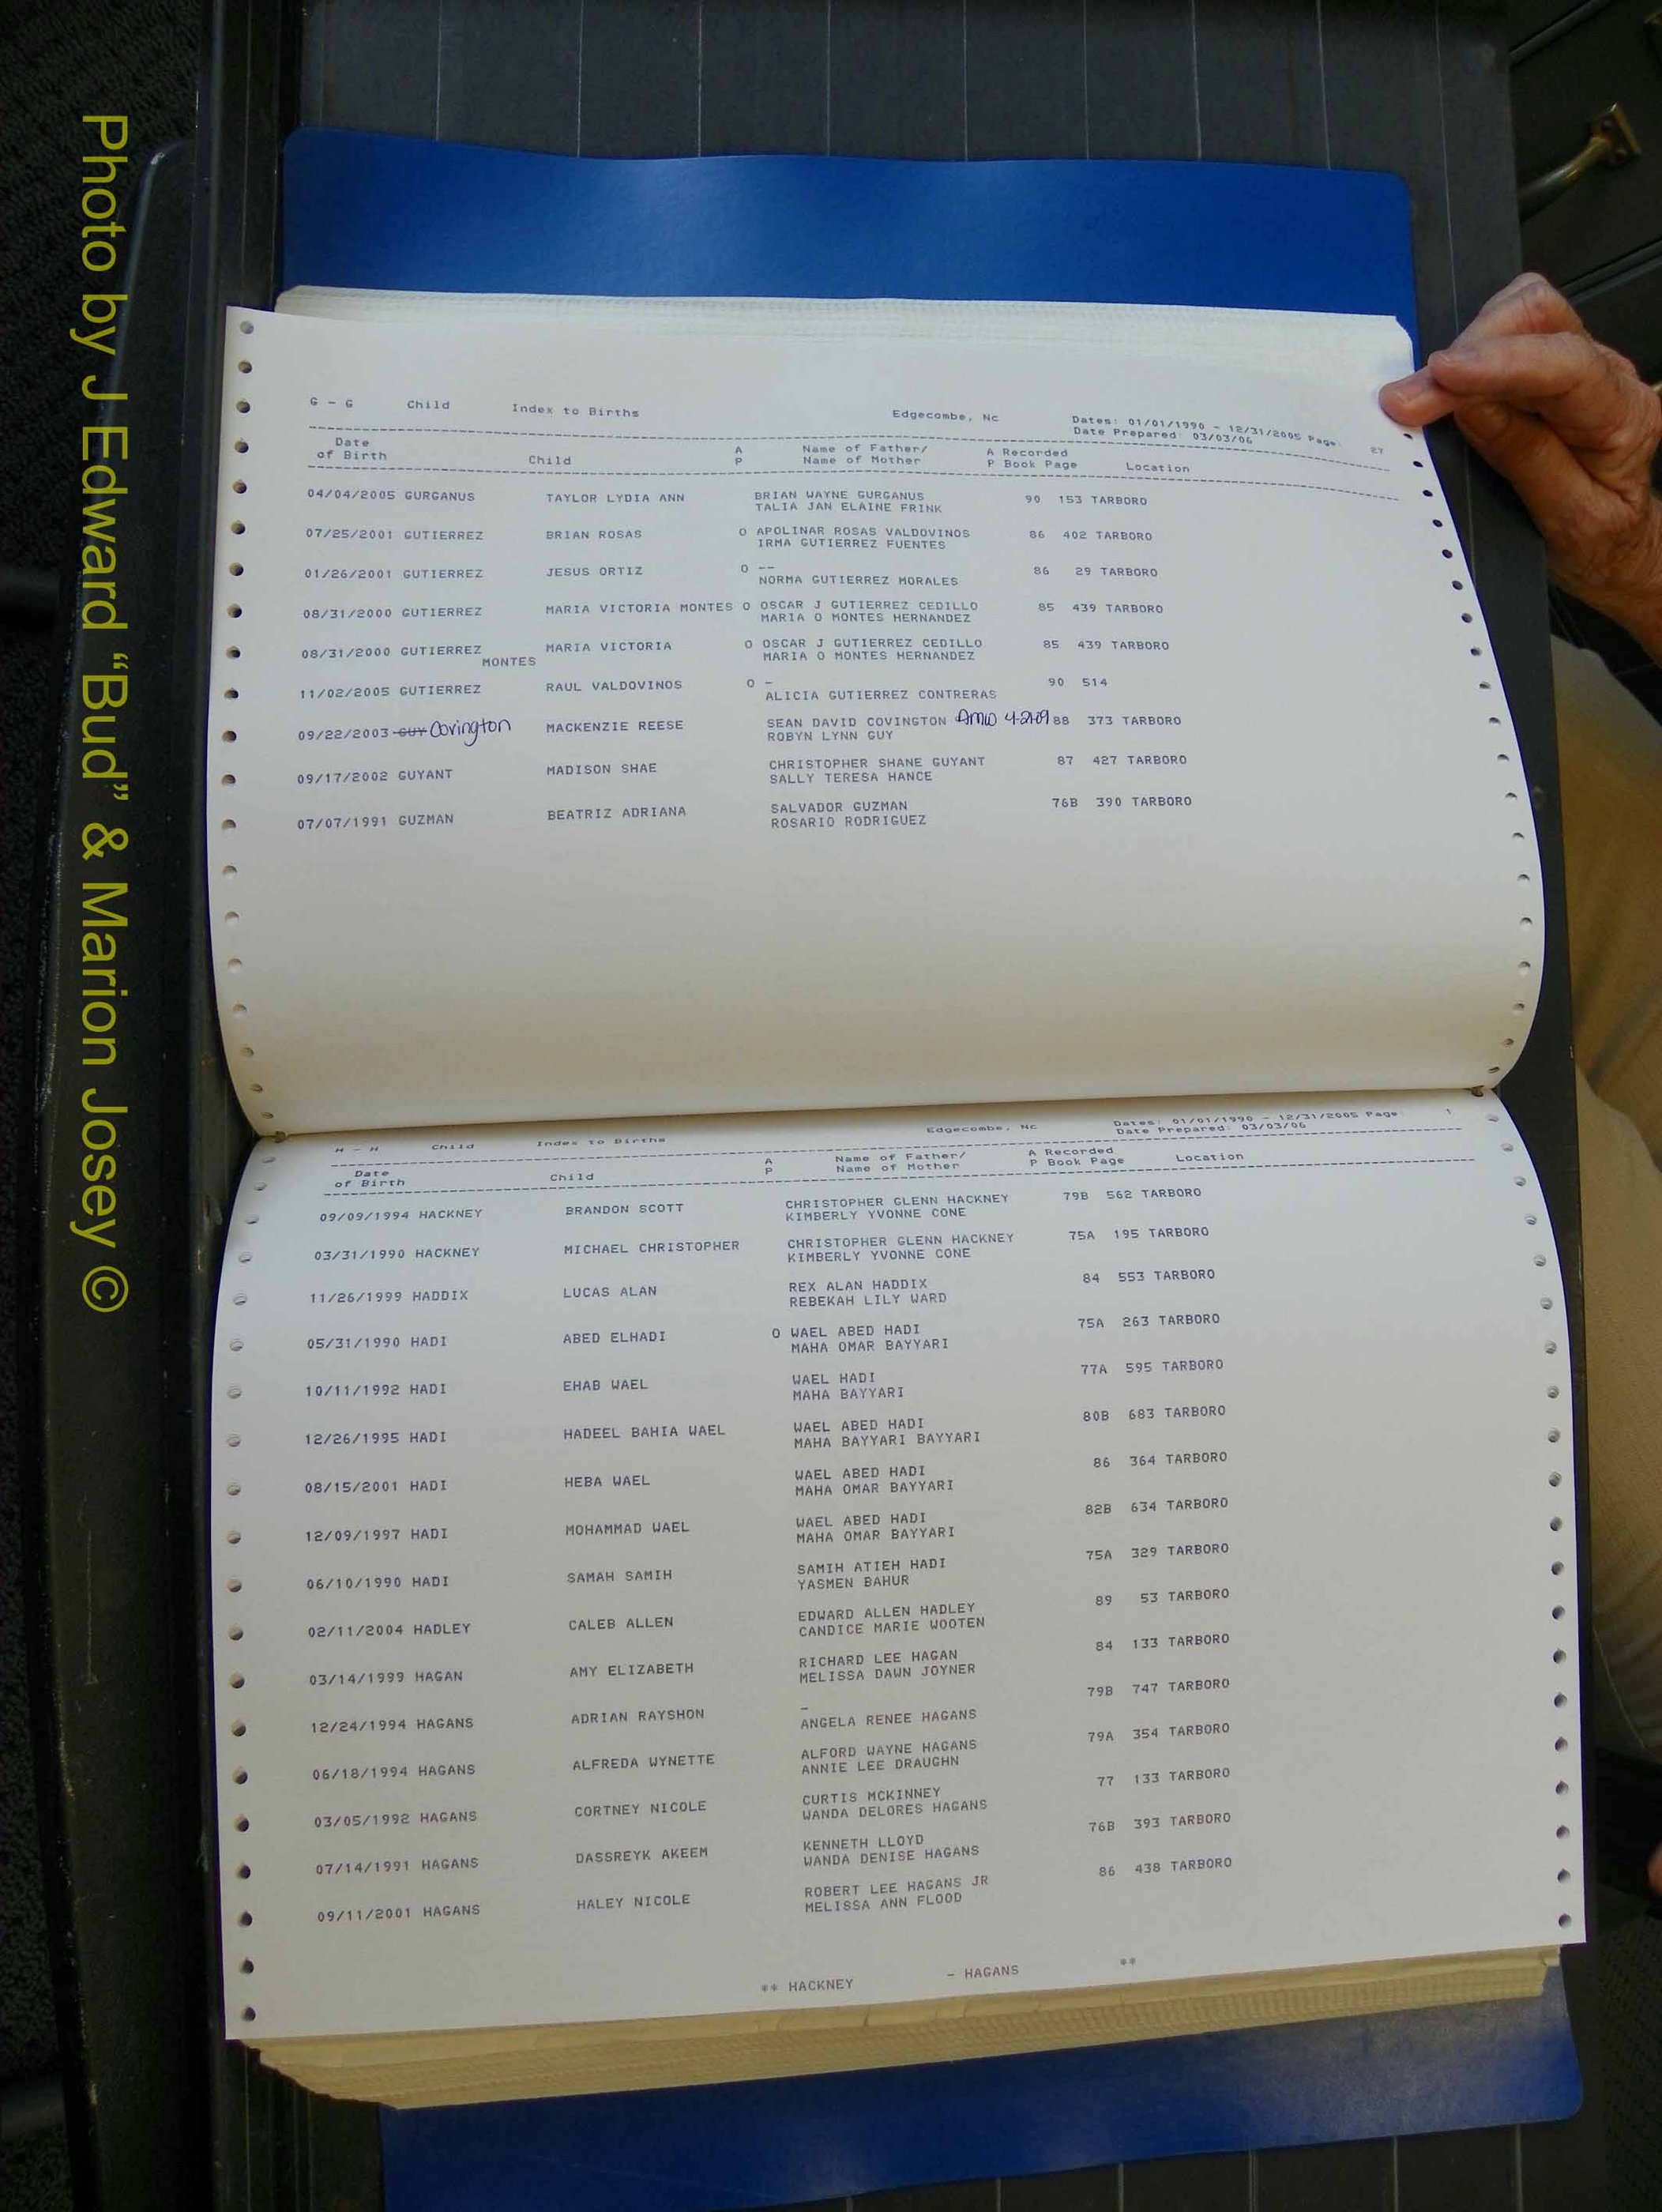 G - G Child Index to Births Edgecombe, Nc Dates: 01/01/1990 - 12/31/2005 Page: 27
Date Prepared: 03/03/06
Date of Birth Child A P Name of Father/ Name of Mother A P Recorded Book Page Location
04/04/2005 GURGANUS TAYLOR LYDIA ANN BRIAN WAYNE GURGANUS 90 153 TARBORO
TALIA JAN ELAINE FRINK
07/25/2001 GUTIERREZ BRIAN ROSAS O APOLINAR ROSAS VALDOVINOS 86 402 TARBORO
IRMA GUTIERREZ FUENTES
01/26/2001 GUTIERREZ JESUS ORTIZ O -- 86 29 TARBORO
NORMA GUTIERREZ MORALES
08/31/2000 GUTIERREZ MARIA VICTORIA MONTES O OSCAR J GUTIERREZ CEDILLO 85 439 TARBORO
MARIA O MONTES HERNANDEZ
08/31/2000 GUTIERREZ MARIA VICTORIA O OSCAR J GUTIERREZ CEDILLO 85 439 TARBORO
MONTES MARIA O MONTES HERNANDEZ
11/02/2005 GUTIERREZ RAUL VALDOVINOS O - 90 514
ALICIA GUTIERREZ CONTRERAS
09/22/2003 GUY Covington MACKENZIE REESE SEAN DAVID COVINGTON 88 373 TARBORO
ROBYN LYNN GUY
09/17/2002 GUYANT MADISON SHAE CHRISTOPHER SHANE GUYANT 87 427 TARBORO
SALLY TERESA HANCE
07/07/1991 GUZMAN BEATRIZ ADRIANA SALVADOR GUZMAN 76B 390 TARBORO
ROSARIO RODRIGUEZ
H - H Child Index to Births Edgecombe, Nc Dates: 01/01/1990 - 12/31/2005 Page: 1
Date Prepared: 03/03/06
Date of Birth Child A P Name of Father/ Name of Mother A P Recorded Book Page Location
09/09/1994 HACKNEY BRANDON SCOTT CHRISTOPHER GLENN HACKNEY 79B 562 TARBORO
KIMBERLY YVONNE CONE
03/31/1990 HACKNEY MICHAEL CHRISTOPHER CHRISTOPHER GLENN HACKNEY 75A 195 TARBORO
KIMBERLY YVONNE CONE
11/26/1999 HADDIX LUCAS ALAN REX ALAN HADDIX 84 553 TARBORO
REBEKAH LILY WARD
05/31/1990 HADI ABED ELHADI O WAEL ABED HADI 75A 263 TARBORO
MAHA OMAR BAYYARI
10/11/1992 HADI EHAB WAEL WAEL HADI 77A 595 TARBORO
MAHA BAYYARI
12/26/1995 HADI HADEEL BAHIA WAEL WAEL ABED HADI 80B 683 TARBORO
MAHA BAYYARI BAYYARI
08/15/2001 HADI HEBA WAEL WAEL ABED HADI 86 364 TARBORO
MAHA OMAR BAYYARI
12/09/1997 HADI MOHAMMAD WAEL WAEL ABED HADI 82B 634 TARBORO
MAHA OMAR BAYYARI
06/10/1990 HADI SAMAH SAMIH SAMIH ATIEH HADI 75A 329 TARBORO
YASMEN BAHUR
02/11/2004 HADLEY CALEB ALLEN EDWARD ALLEN HADLEY 89 53 TARBORO
CANDICE MARIE WOOTEN
03/14/1999 HAGAN AMY ELIZABETH RICHARD LEE HAGAN 84 133 TARBORO
MELISSA DAWN JOYNER
12/24/1994 HAGANS ADRIAN RAYSHON - 79B 747 TARBORO
ANGELA RENEE HAGANS
06/18/1994 HAGANS ALFREDA WYNETTE ALFORD WAYNE HAGANS 79A 354 TARBORO
ANNIE LEE DRAUGHN
03/05/1992 HAGANS CORTNEY NICOLE CURTIS MCKINNEY 77 133 TARBORO
WANDA DELORES HAGANS
07/14/1991 HAGANS DASSREYK AKEEM KENNETH LLOYD 76B 393 TARBORO
WANDA DENISE HAGANS
09/11/2001 HAGANS HALEY NICOLE ROBERT LEE HAGANS JR 86 438 TARBORO
MELISSA ANN FLOOD
** HACKNEY - HAGANS **
Photo by J Edward "Bud" & Marion Josey ©